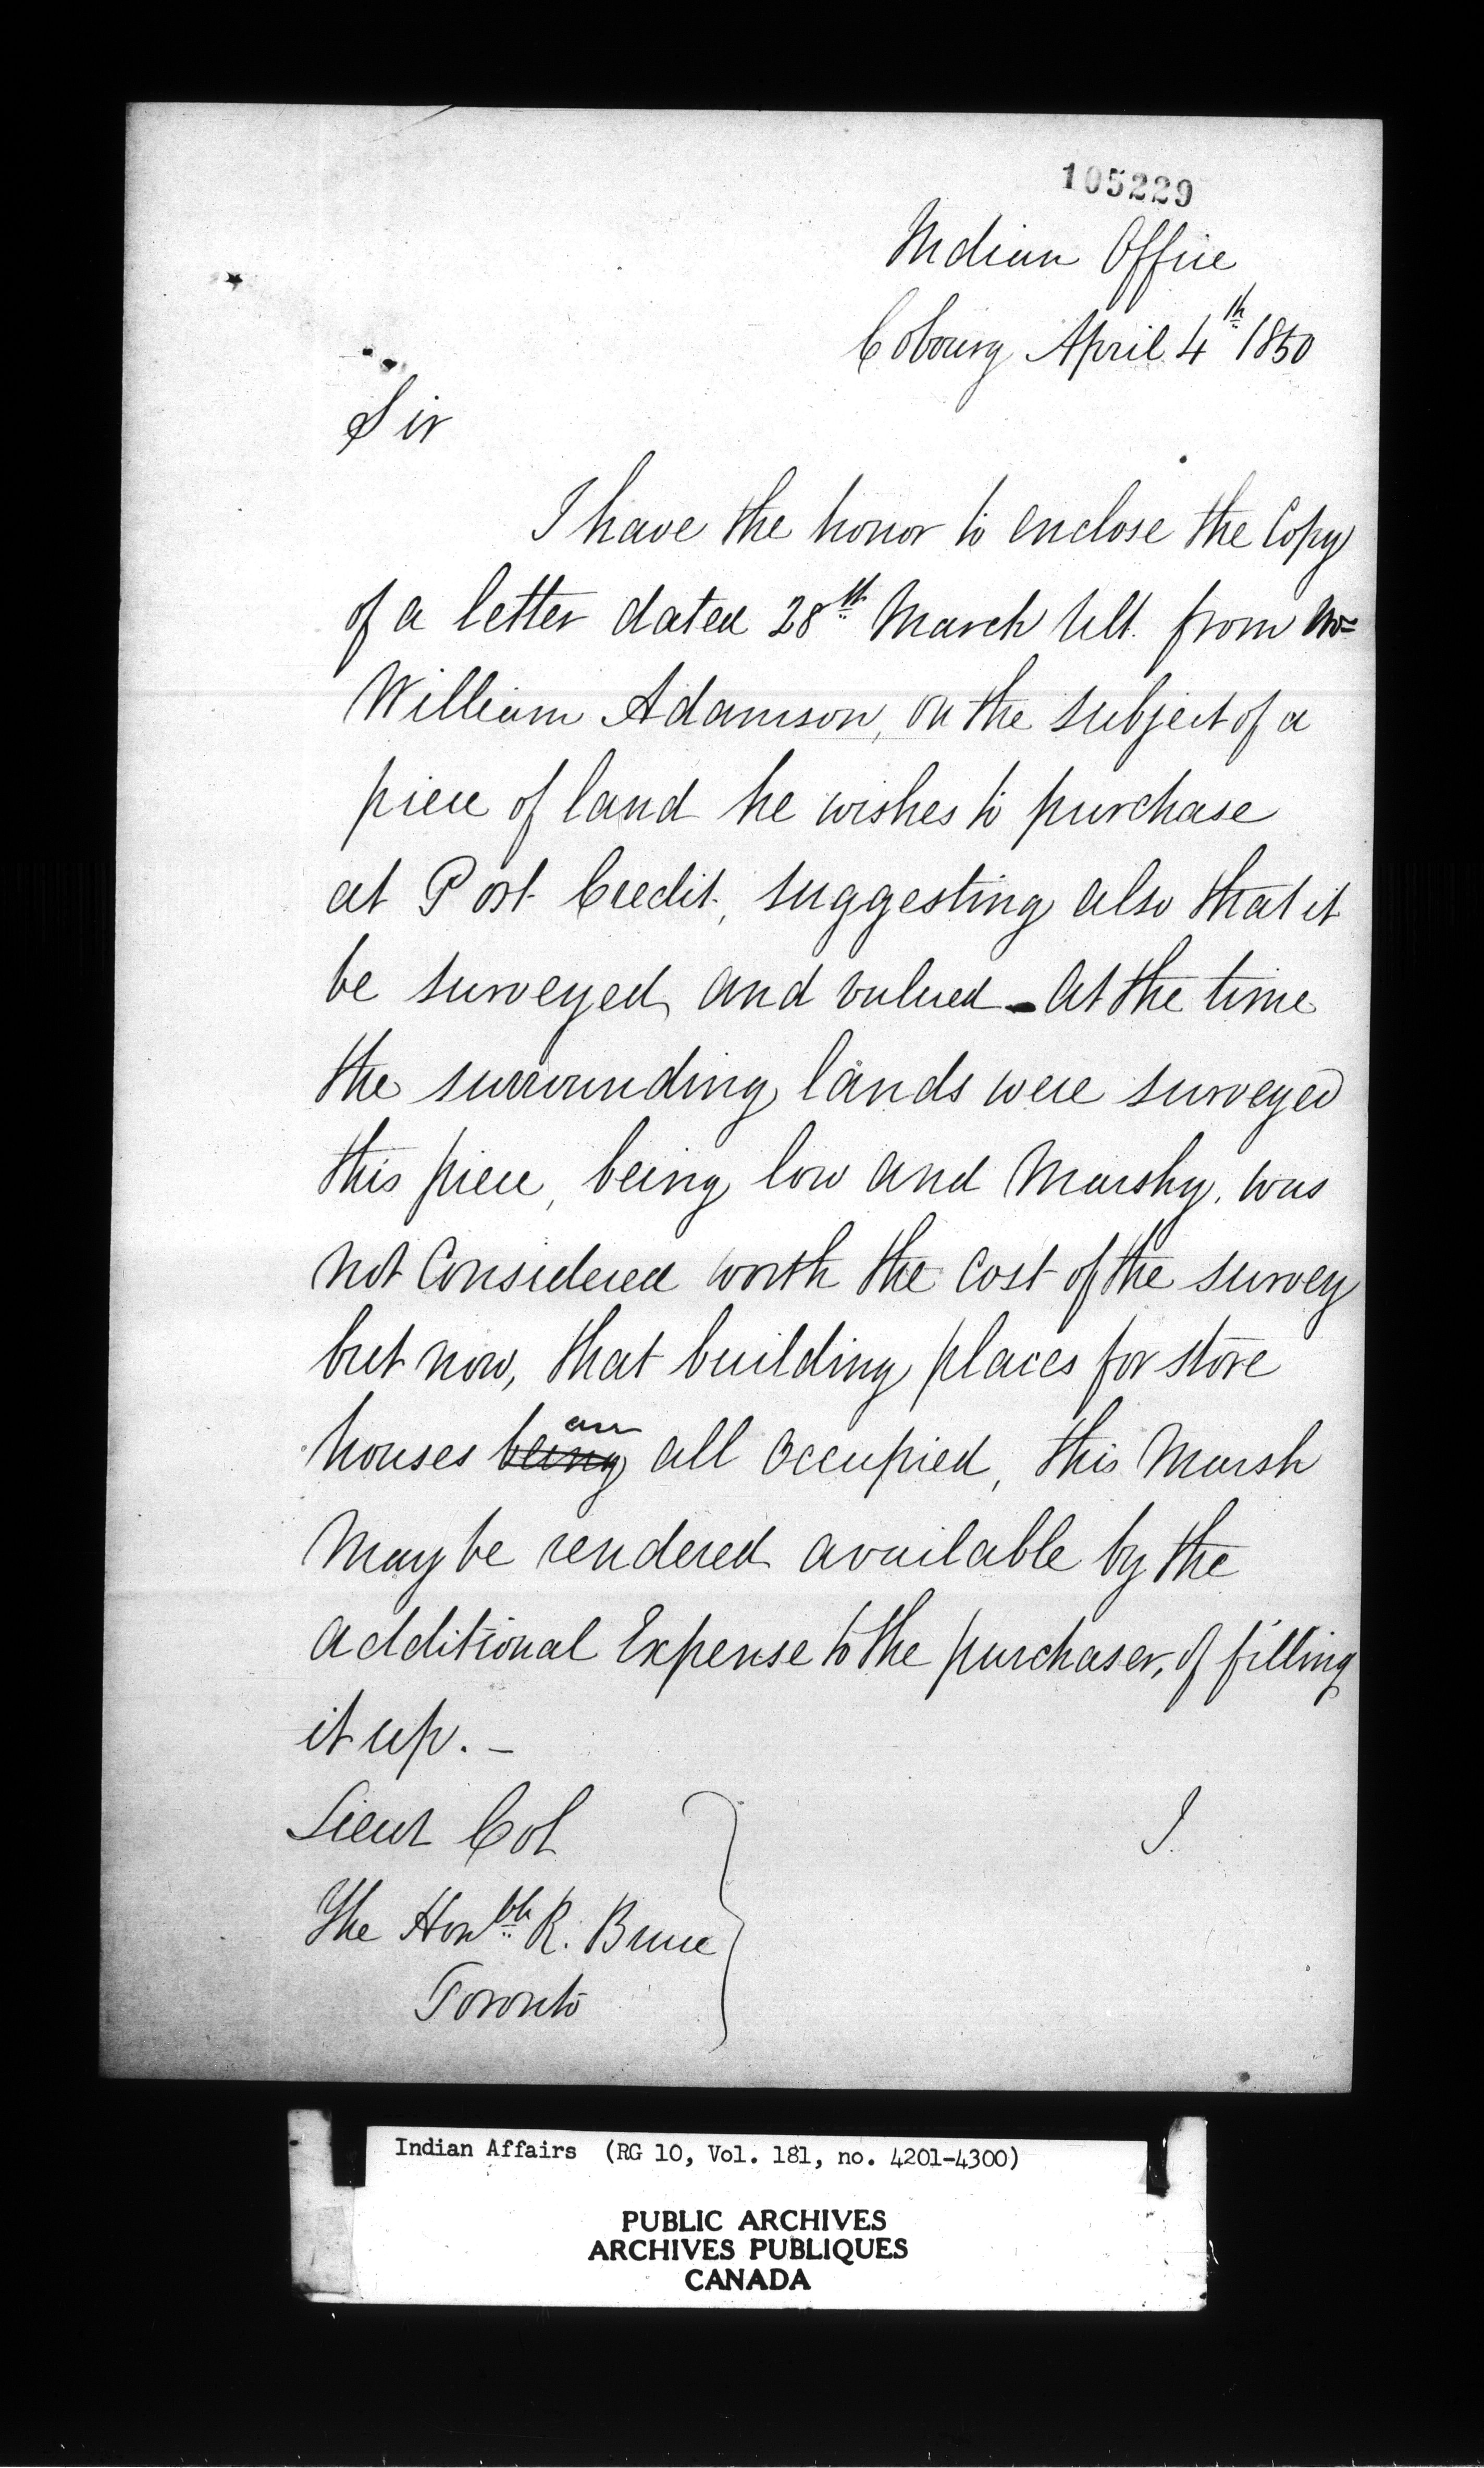 105229
Indian Office
Cobourg April 4th 1850
Sir
I have the honor to enclose the Copy
of a letter dated 28th March Ult. from Mr
William Adamson, on the subject of a
piece of land he wishes to purchase
at Port Credit, suggesting also that it
be surveyed and valued - At the time
the surrounding lands were surveyed
this piece, being low and Marshy, was
not Considered worth the Cost of the survey
but now, that building places for store
houses being are all occupied, this Marsh
May be rendered available by the
additional Expense to the purchaser, of filling
it up. -
Lieut Col
The Honble R. Bruce
Toronto
I
Indian Affairs (RG 10, Vol. 181, no. 4201-4300)
PUBLIC ARCHIVES
ARCHIVES PUBLIQUES
CANADA